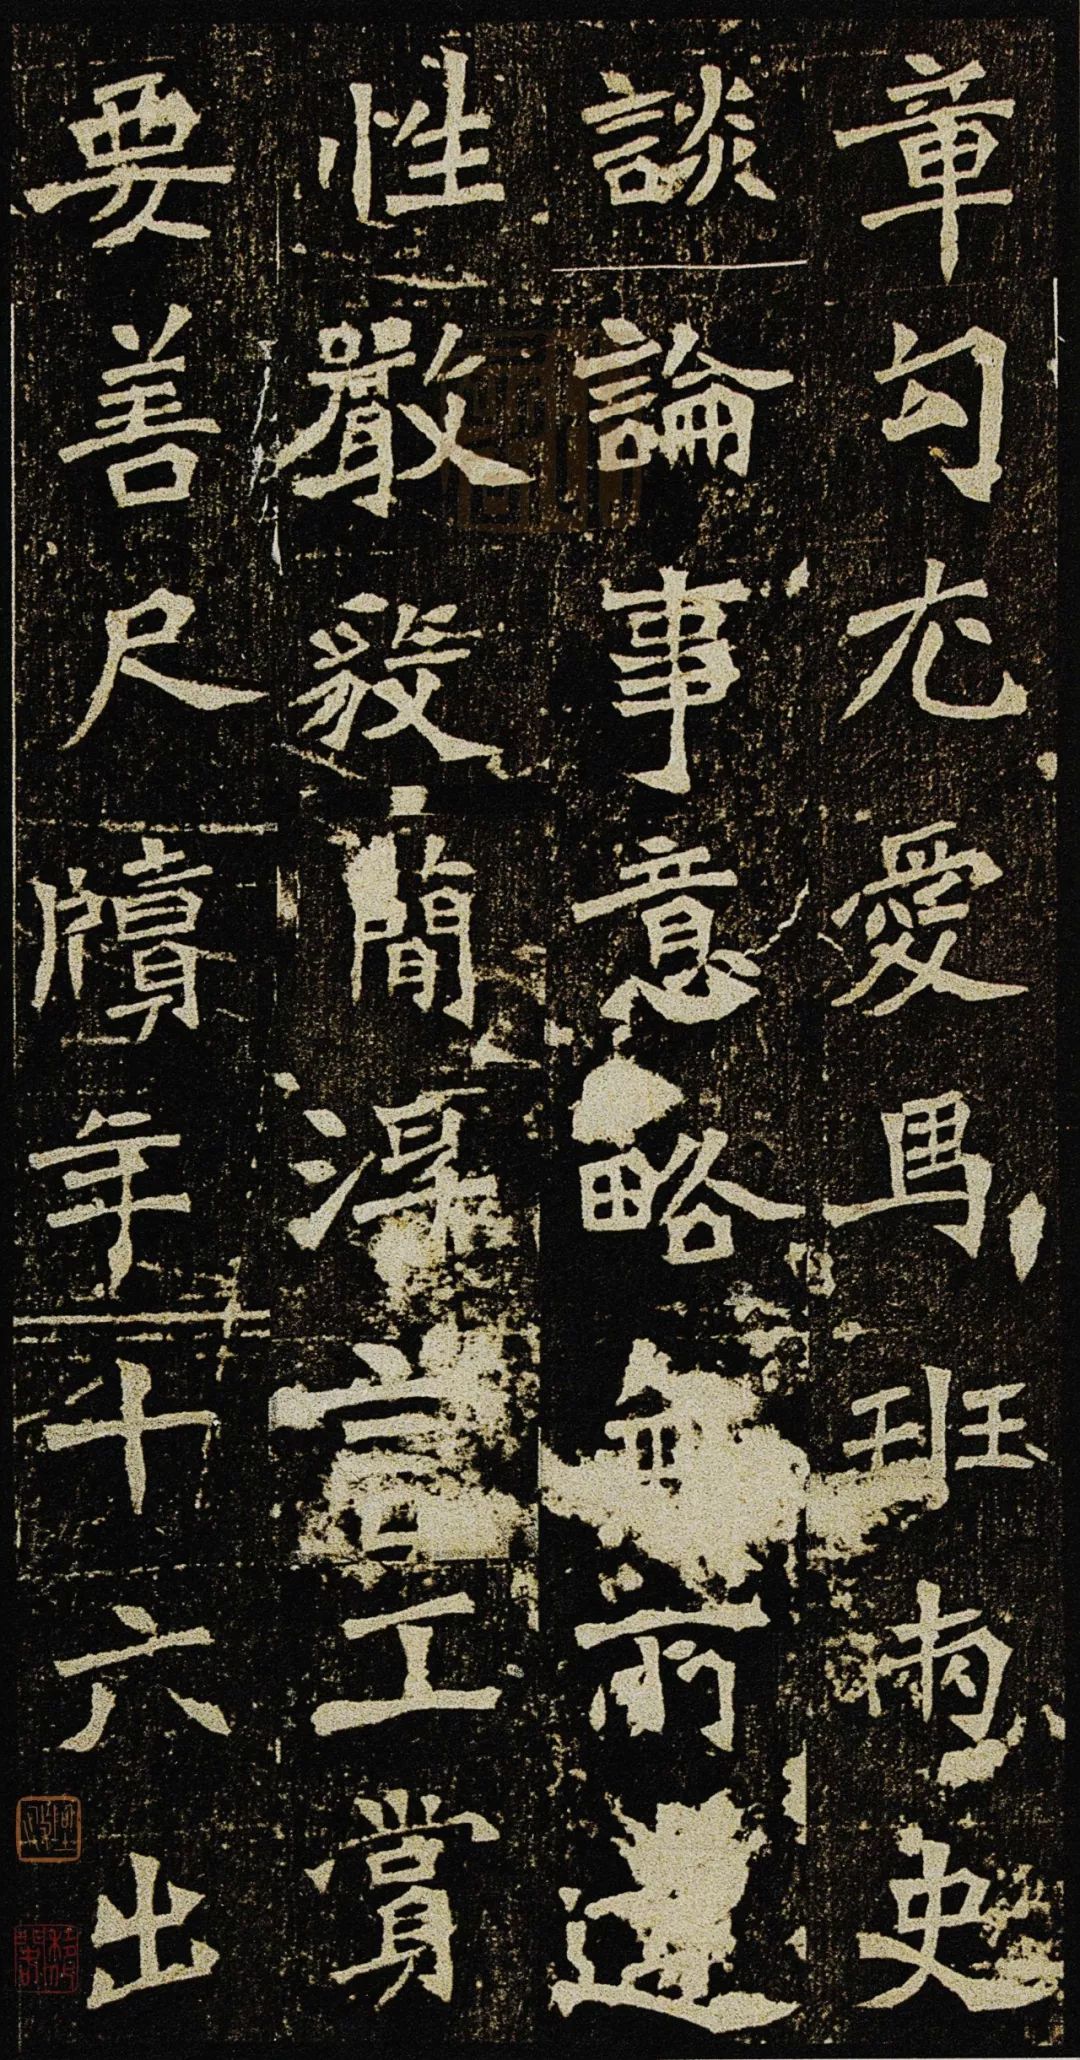 章句尤愛馬班兩史
談論事意略無所遺
性嚴毅簡澤言工賞
要善尺牘年十六出